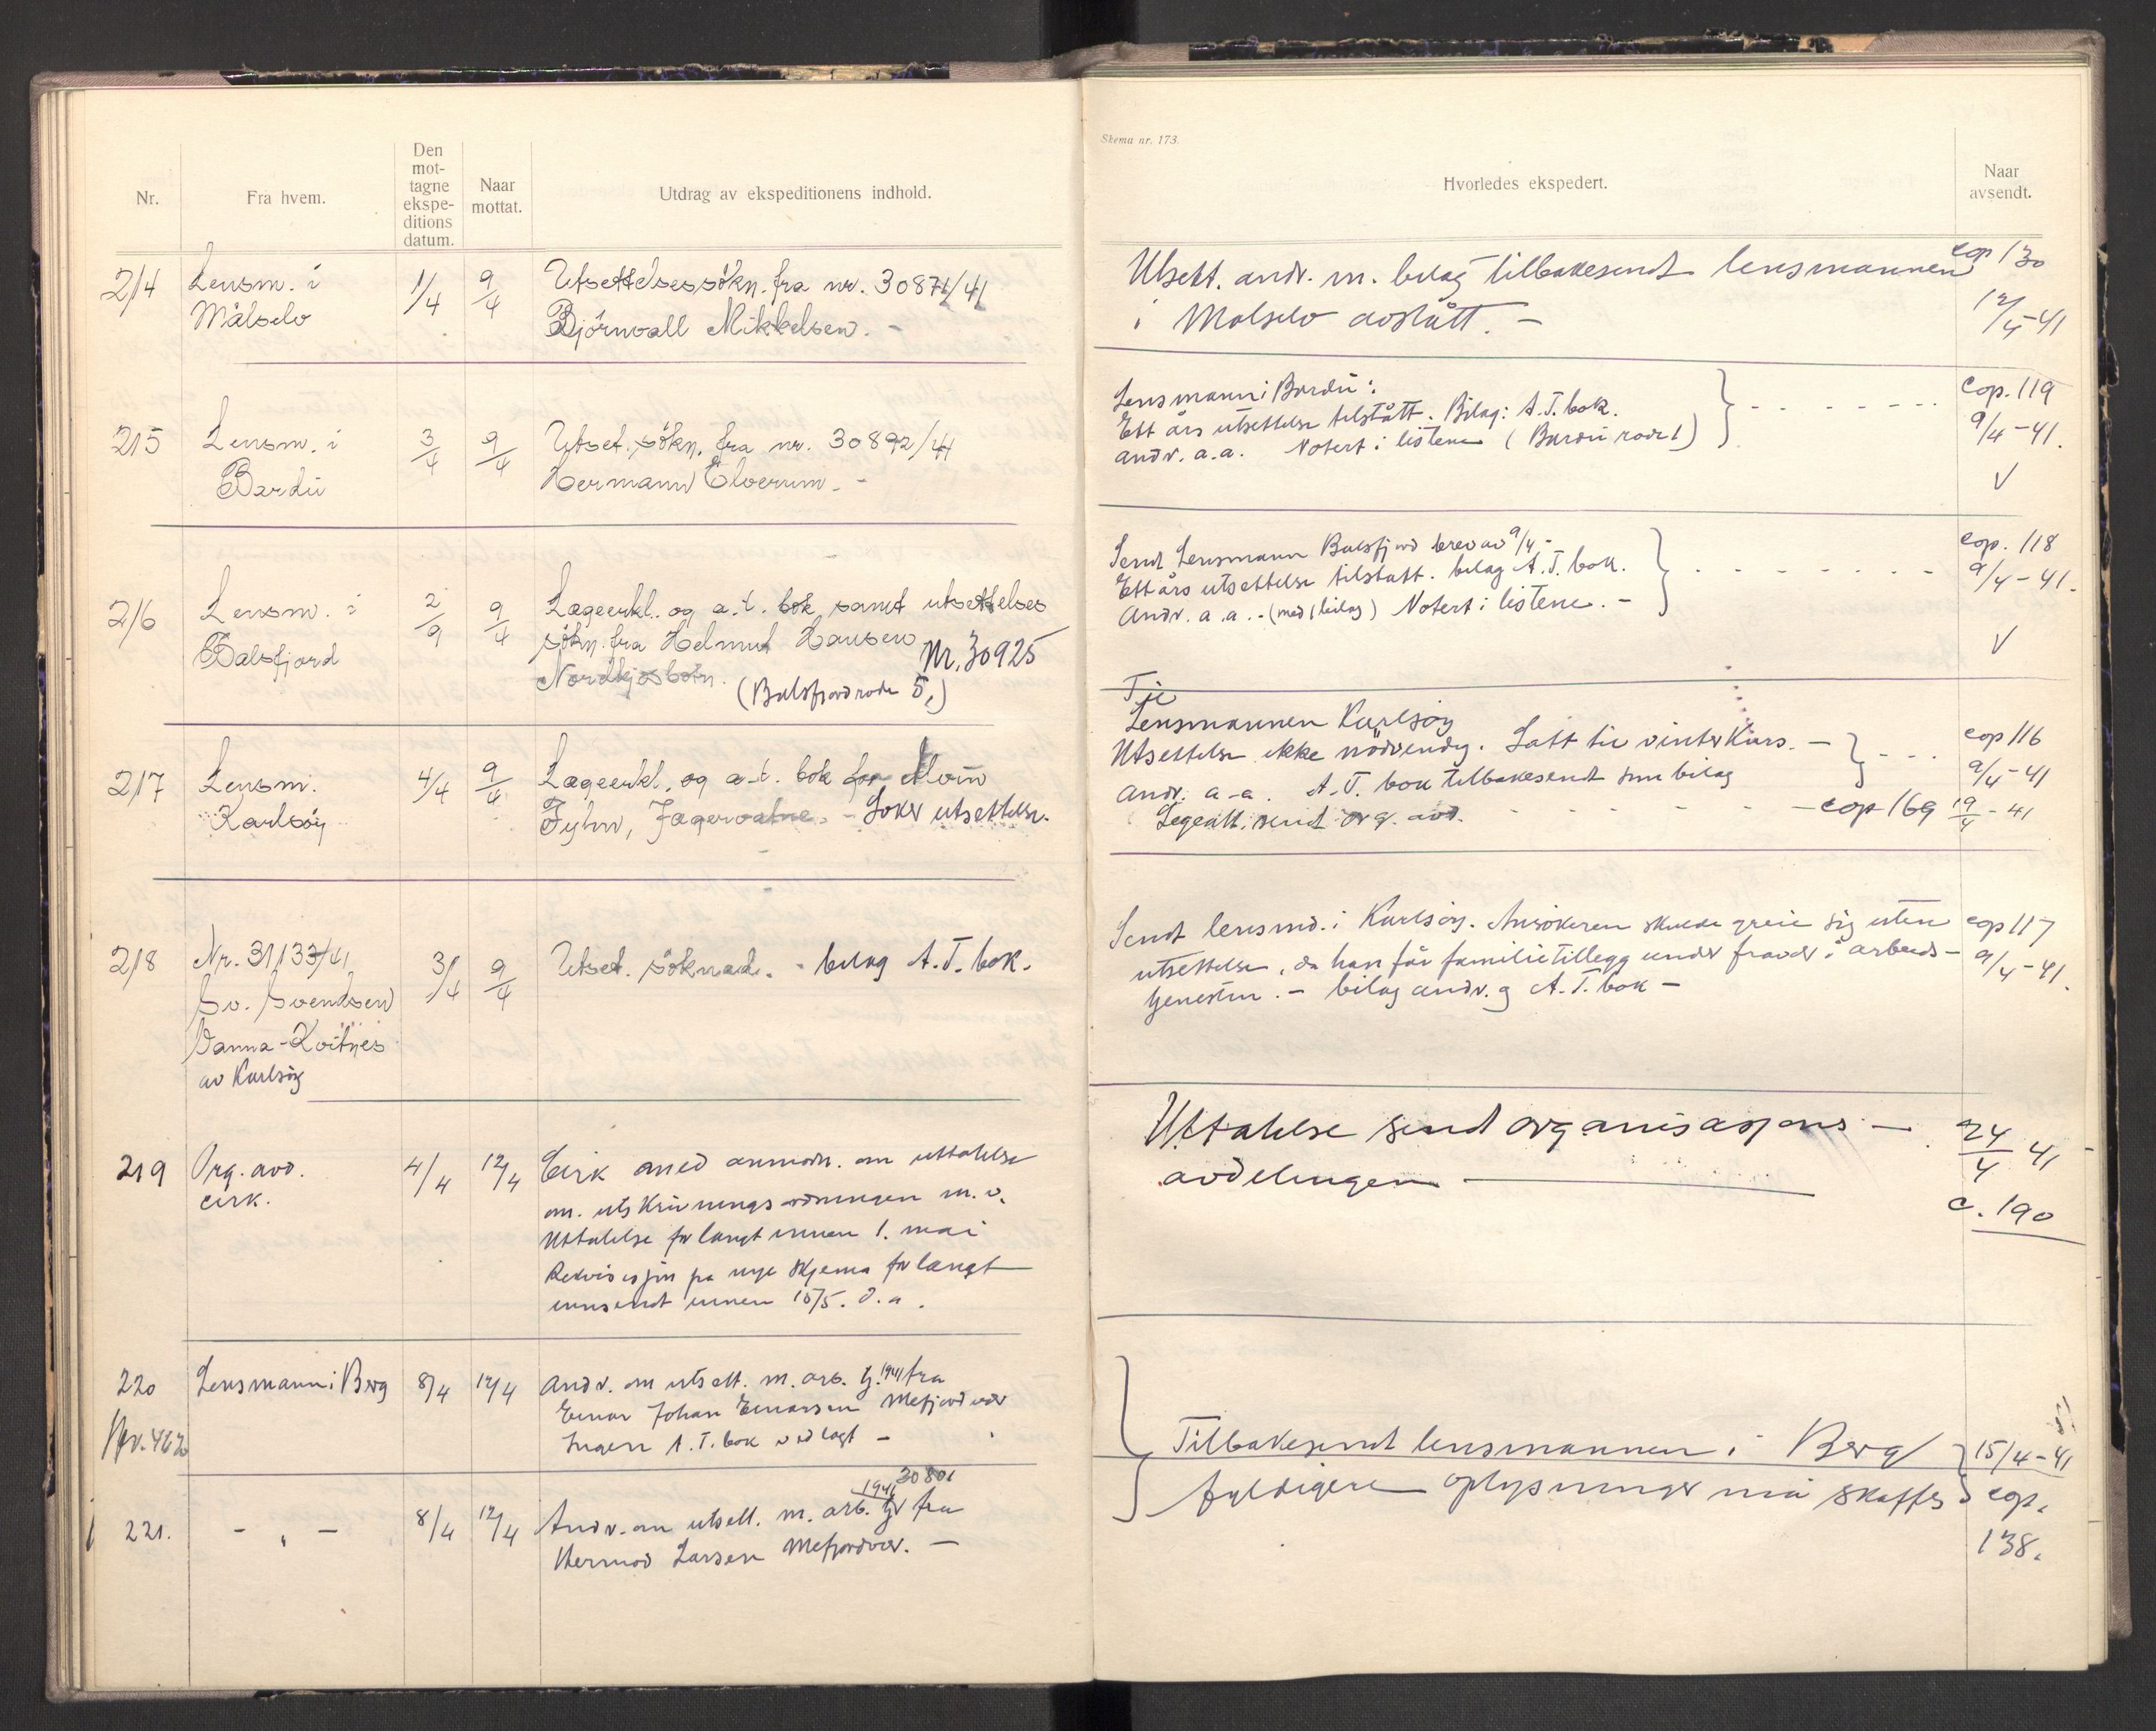 Nr.
Fra hvem.
Den
mot-
tagne
ekspe-
ditions
datum.
Naar
mottat.
Utdrag av ekspeditionens indhold.
214
Lensm. i
Målselv
1/4
9/4
Utsettelsessökn. fra nr. 30871/41
Björnvall Mikkelsen. -
215
Lensm. i
Bardu
3/4
9/4
Utset. sökn. fra nr. 30892/41
Hermann Elverum. -
216
Lensm. i
Balsfjord
2/9
9/4
Lægeerkl. og a.t. bok samt utsettelses
sökn. fra Helmut Hansen
Nordkjosbotn. Nr. 30925
(Balsfjord rode 5.)
217
Lensm.
Karlsöy
4/4
9/4
Lægeerkl. og a-t. bok for
Fyhn, Jægervatne. - Söker utsettelse.
218
Nr. 31133/41
Sv. Svendsen
Vanna-Kvitnes
av Karlsöy
3/4
9/4
Utset. söknad. - bilag A.T. bok.
219
Org. avd.
cirk.
4/4
12/4
Cirk med anmodn. om uttalelse
om. utskrivningsordningen m.v.
Uttalelse forlangt innen 1. mai
Rekvisisjon på nye skjema forlangt
innsendt innen 15/5. d.a.
220
Nr. 462
Lensmann i Berg
8/4
12/4
Andr. om utsett. m. arb. tj. 1941 fra
Einar Johan Einarsen Mefjordvær
Ingen A.T. bok vedlagt -
221.
- " -
8/4
12/4
30801
Andr. om utsett. m. arb. tj. 1941 fra
Hermod Larsen Mefjordvær. -
Skema nr. 173.
Hvorledes ekspedert.
Naar
avsendt.
Utsett. andr. m. bilag tilbakesendt lensmannen
i Målselv avslått. -
cop 130
12/4-41
Lensmann i Bardu:
Ett års utsettelse tilstått. Bilag: A.T. bok.
andr. a.a. Notert i listene (Bardu rode 1)
cop. 119
9/4-41.
V
Sendt Lensmann Balsfjord brev av 9/4 -
Ett års utsettelse tilstått. bilag A.T. bok.
Andr. a.a. - (med 1 bilag) Notert i listene. -
cop. 118
9/4-41.
V
Til
Lensmannen Karlsöy
Utsettelse ikke nödvendig. Satt til vinterkurs. -
Andr. a-a. A.T. bok tilbakesendt som bilag
cop 116
9/4-41
Legeatt. sendt org. avd. - - - cop 169 19/4-41
Sendt lensmd. i Karlsöy. Ansökeren skulde greie sig uten
utsettelse, da han får familietillegg under fravær i arbeids-
tjenesten. - bilag andr. og A.T. bok -
cop 117
9/4-41.
Uttalelse sendt organisasjons -
avdelingen
24/4 41
c. 190
Tilbakesendt lensmannen i Berg
fyldigere oplysninger må skaffes
15/4-41
cop.
138.